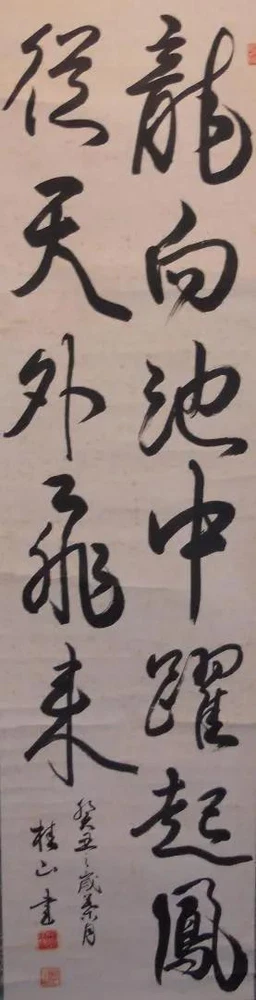 龍向池中躍起鳳
從天外飛来
癸丑之歳葉月
桂山書